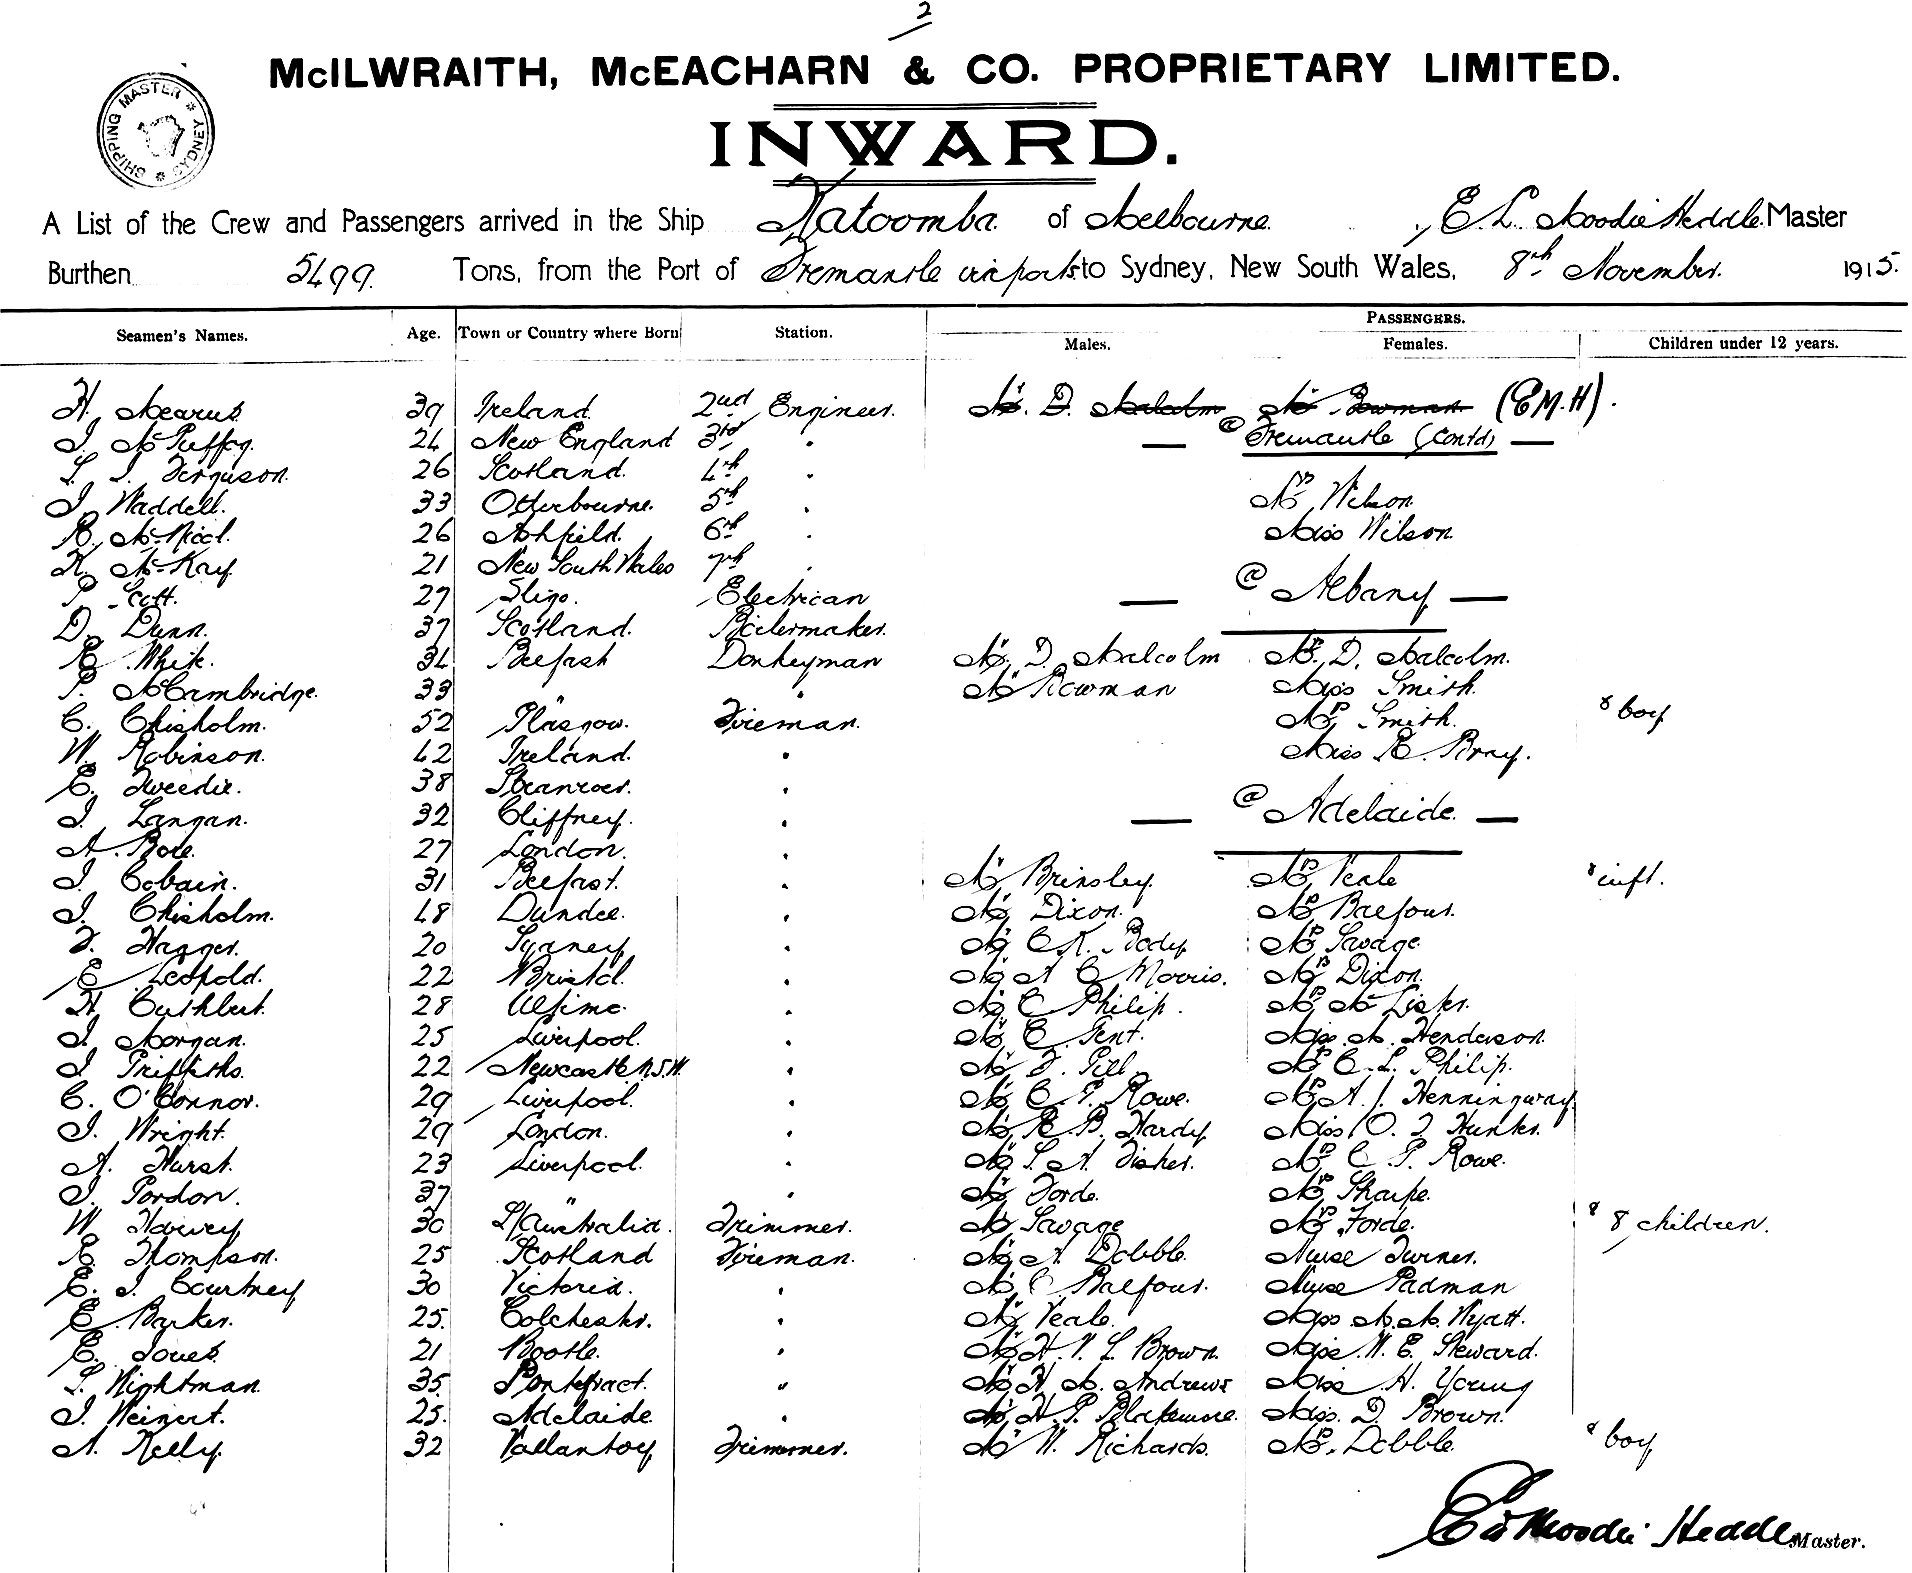 2
McILWRAITH, McEACHARN & CO. PROPRIETARY LIMITED.
SHIPPING MASTER * SYDNEY *
INWARD.
A List of the Crew and Passengers arrived in the Ship Katoomba. of Melbourne. , E. L. Moodie Heddle. Master
Burthen 5499. Tons, from the Port of Fremantle via ports to Sydney, New South Wales, 8th November. 1915.
PASSENGERS.
Seamen's Names. Age. Town or Country where Born Station. Males. Females. Children under 12 years.
H. Mearns 39 Ireland. 2nd Engineer. Mr. D. Malcolm Mr Bowman (E.M.H).
J. McGuffog. 24 New England 3rd " — @ Fremantle (contd) —
S. J. Ferguson. 26 Scotland. 4th "
J. Waddell. 33 Otterbourne. 5th " Mrs Wilson.
R. McNicol. 26 Ashfield. 6th " Miss Wilson.
K. McKay 21 New South Wales 7th "
P. Scott. 27 Sligo. Electrican — @ Albany —
D. Dunn. 37 Scotland. Boilermaker.
R. White. 34 Belfast Donkeyman Mr. D. Malcolm Mrs. D. Malcolm.
P. McCambridge. 33 " " Mr Bowman Miss Smith.
C. Chisholm. 52 Glasgow. Fireman. Mrs Smith. & boy
W. Robinson. 42 Ireland. " Miss R. Bray.
E. Tweedie. 38 Stranraer. "
J. Langan. 32 Cliffney. " — @ Adelaide. —
A. Bole. 27 London. "
J. Cobain. 31 Belfast. " Mr Brinsley. Mrs Veale & inft.
J. Chisholm. 48 Dundee. " Mr Dixon. Mrs Balfour.
F. Hagger. 20 Sydney " Mr C K. Body Mrs Savage
E Leopold. 22 Bristol. " Mr A C Morris. Mrs Dixon.
H. Cuthbert. 28 " Mr C Philip. Mrs Mc Lisks.
J. Morgan. 25 Liverpool. " Mr C Gent. Miss. M. Henderson.
J Griffiths. 22 Newcastle N.S.W. " Mr F. Gill Mrs C. L. Philip.
C. O'Connor. 29 Liverpool. " Mr C. P. Rowe. Mrs A. J. Henningway.
J. Wright. 29 London. " Mr R B. Hardy Miss O. J Hunks.
A. Hurst. 23 Liverpool. " Mr S. A. Fisher. Mrs C. P. Rowe.
J. Gordon. 37 " " Mr Forde. Mrs Sharpe.
W. Harvey 30 S/Australia. Trimmer. Mr Savage Mrs Forde. & 8 children.
R. Thompson. 25 Scotland Fireman. Mr A. Dobble. Nurse Turner.
E. J. Courtney 30 Victoria. " Mr C Balfour. Nurse Padman
E. Barker. 25. Colchester. " Mr Veale. Miss M. M. Wyatt.
E. Jones 21 Bootle. " Mr H. V. L. Brown. Miss. W. E. Steward.
S. Wightman. 35. Pontefract. " Mr H M. Andrews Miss. H. Young
J. Weinert. 25. Adelaide. " Mr H. P. Blakemore. Miss. D. Brown.
A. Kelly. 32 Trimmer. Mr W. Richards. Mrs. Dobble. & boy
E L Moodie Heddle Master.